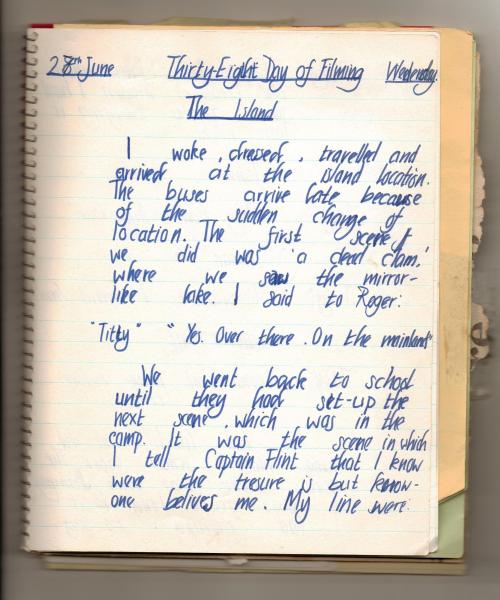 28th June Thirty-Eight Day of Filming Wedensday.
The Island
I woke, dressed, travelled and
arrived at the island location.
The buses arrive late because
of the sudden change of
location. The first scene
we did was 'a dead clam.'
where we saw the mirror-
like lake. I said to Roger:
"Titty" " Yes. Over there. On the mainland"
We went back to school
until they had set-up the
next scene, which was in the
camp. It was the scene in which
I tell Captain Flint that I know
were the tresure is but know-
one belives me. My line were: